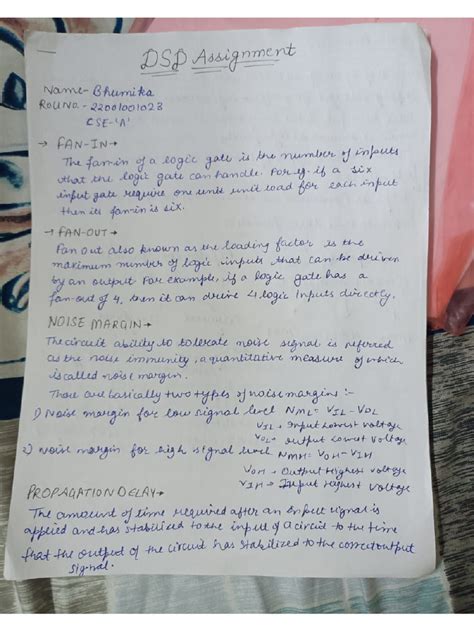 DSD Assignment
Name- Bhumika
Roll NO. - 22001001028
CSE-'A'
→ FAN-IN→
The fanin of a logic gate is the number of inputs
that the logic gate can handle. For eg. if a six
input gate require one unit unit load for each input
then its fanin is six.
→ FAN-OUT→
Fan out also known as the loading factor is the
maximum number of logic inputs that can be driven
by an output For example, if a logic gate has a
fan-out of 4, then it can drive 4 logic Inputs directly.
NOISE MARGIN→
The circuit ability to tolerate noise signal is referred
as the noise immunity, a quantitative measure of which
is called noise margin.
There are basically two types of noise margins :-
1) Noise margin for low signal level NML = VIL - VOL
VIL → Input Lowest Voltage
VOL → output Lowest Voltage
2) Noise margin for high signal level NMH = VOH - VIH
VOH → Output Highest voltage
VIH → Input Highest Voltage
PROPAGATION DELAY→
The amount of time required after an input signal is
applied and has stabilized to the input of a circuit to the time
that the output of the circuit has stabilized to the correct output
signal.